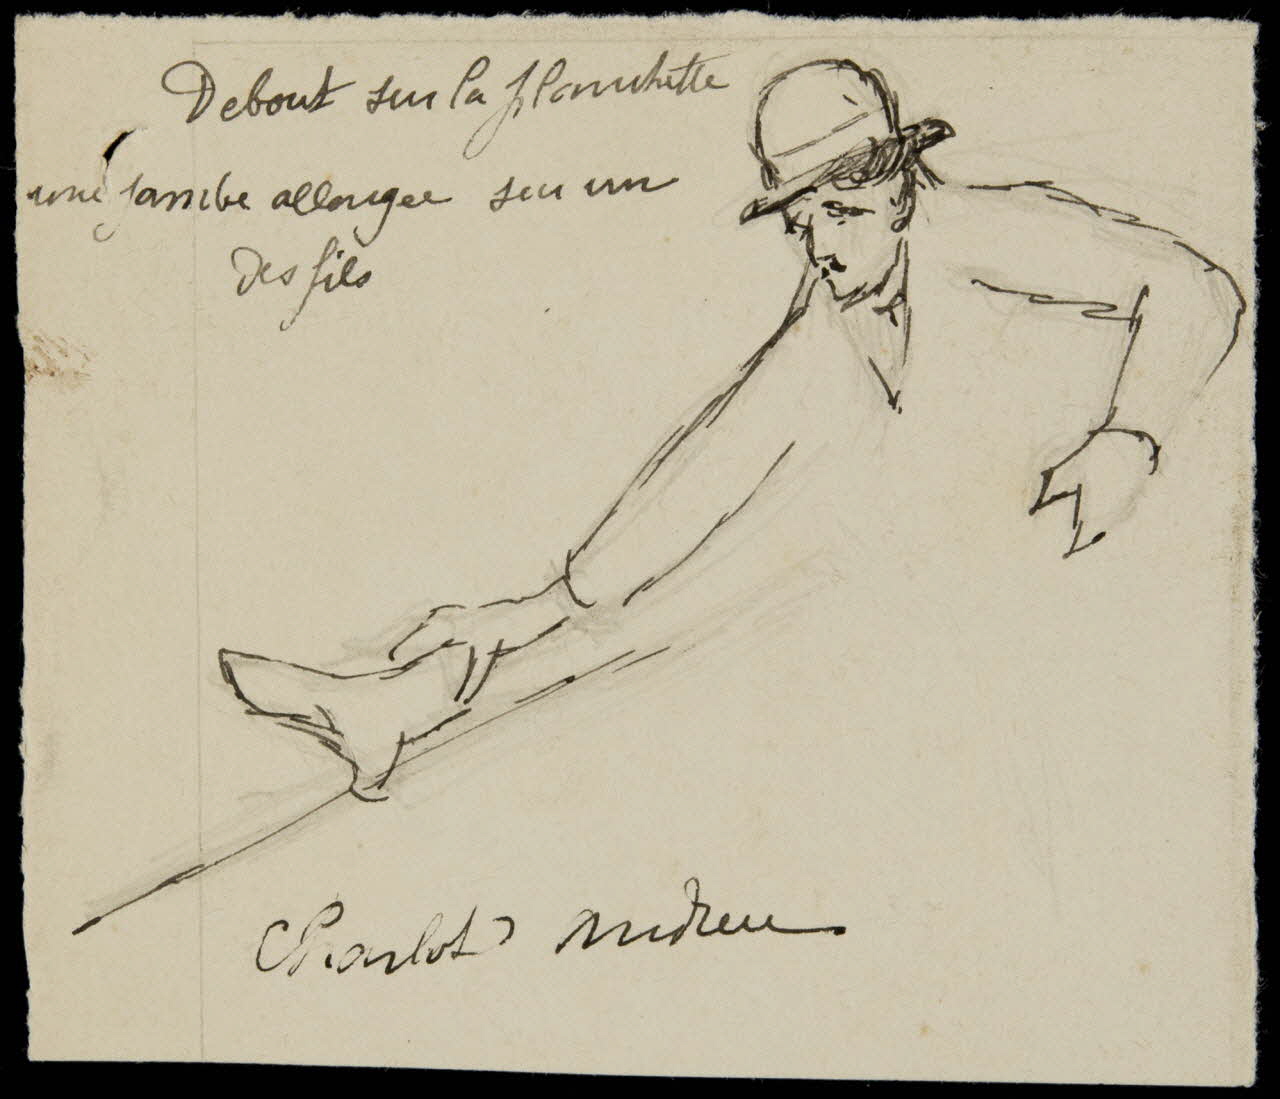 Debout sur la planchette
une jambe allongee sur un
des fils
Charlot Andreu